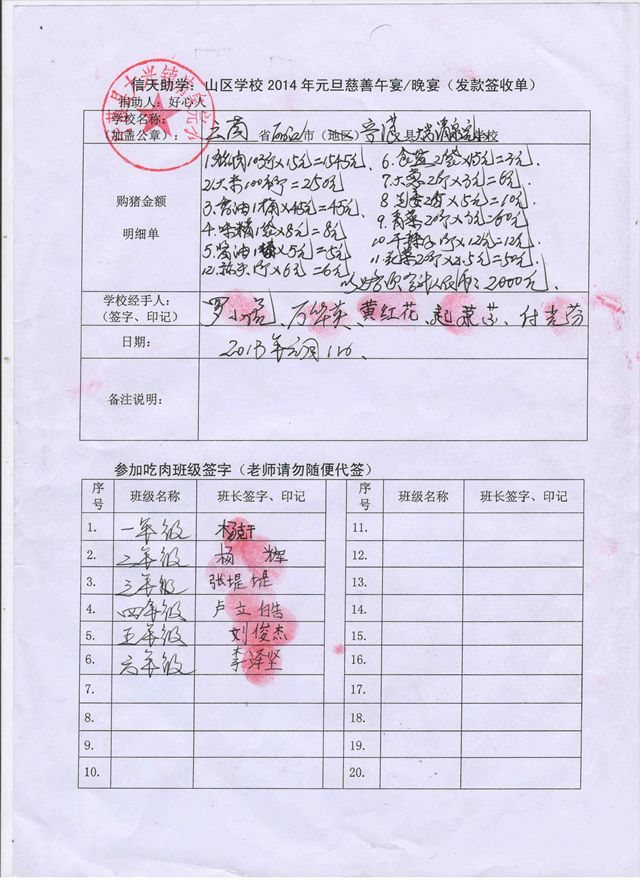 信天助学：山区学校2014年元旦慈善午宴/晚宴（发款签收单）
捐助人：好心人
学校名称：
（加盖公章）：
云南 省 市（地区） 县 学校
购猪金额
明细单
1.猪肉103斤×15元=1545元、 6.食盐2袋×1.5元=3元、
2.大米100斤=250元 7.大蒜2斤×3元=6元
3.香油1桶×45元=45元、 8.生姜2斤×5元=10元
4.味精1袋×8元=8元 9.青菜20斤×3元=60元
5.酱油1桶×5元=5元 10.干辣子1斤×12元=12元
12. 1斤×6元=6元 11. 菜2斤×2.5元=50元、
2000元、
学校经手人：
（签字、印记）
罗小 万华英、黄红花、起 芬、付光芬
日期：
2013年 月
备注说明：
参加吃肉班级签字（老师请勿随便代签）
序号 班级名称 班长签字、印记 序号 班级名称 班长签字、印记
1. 一年级 杨 11.
2. 二年级 杨辉 12.
3. 三年级 张堤堤 13.
4. 四年级 卢立皓 14.
5. 五年级 刘俊杰 15.
6. 六年级 李泽坚 16.
7. 17.
8. 18.
9. 19.
10. 20.